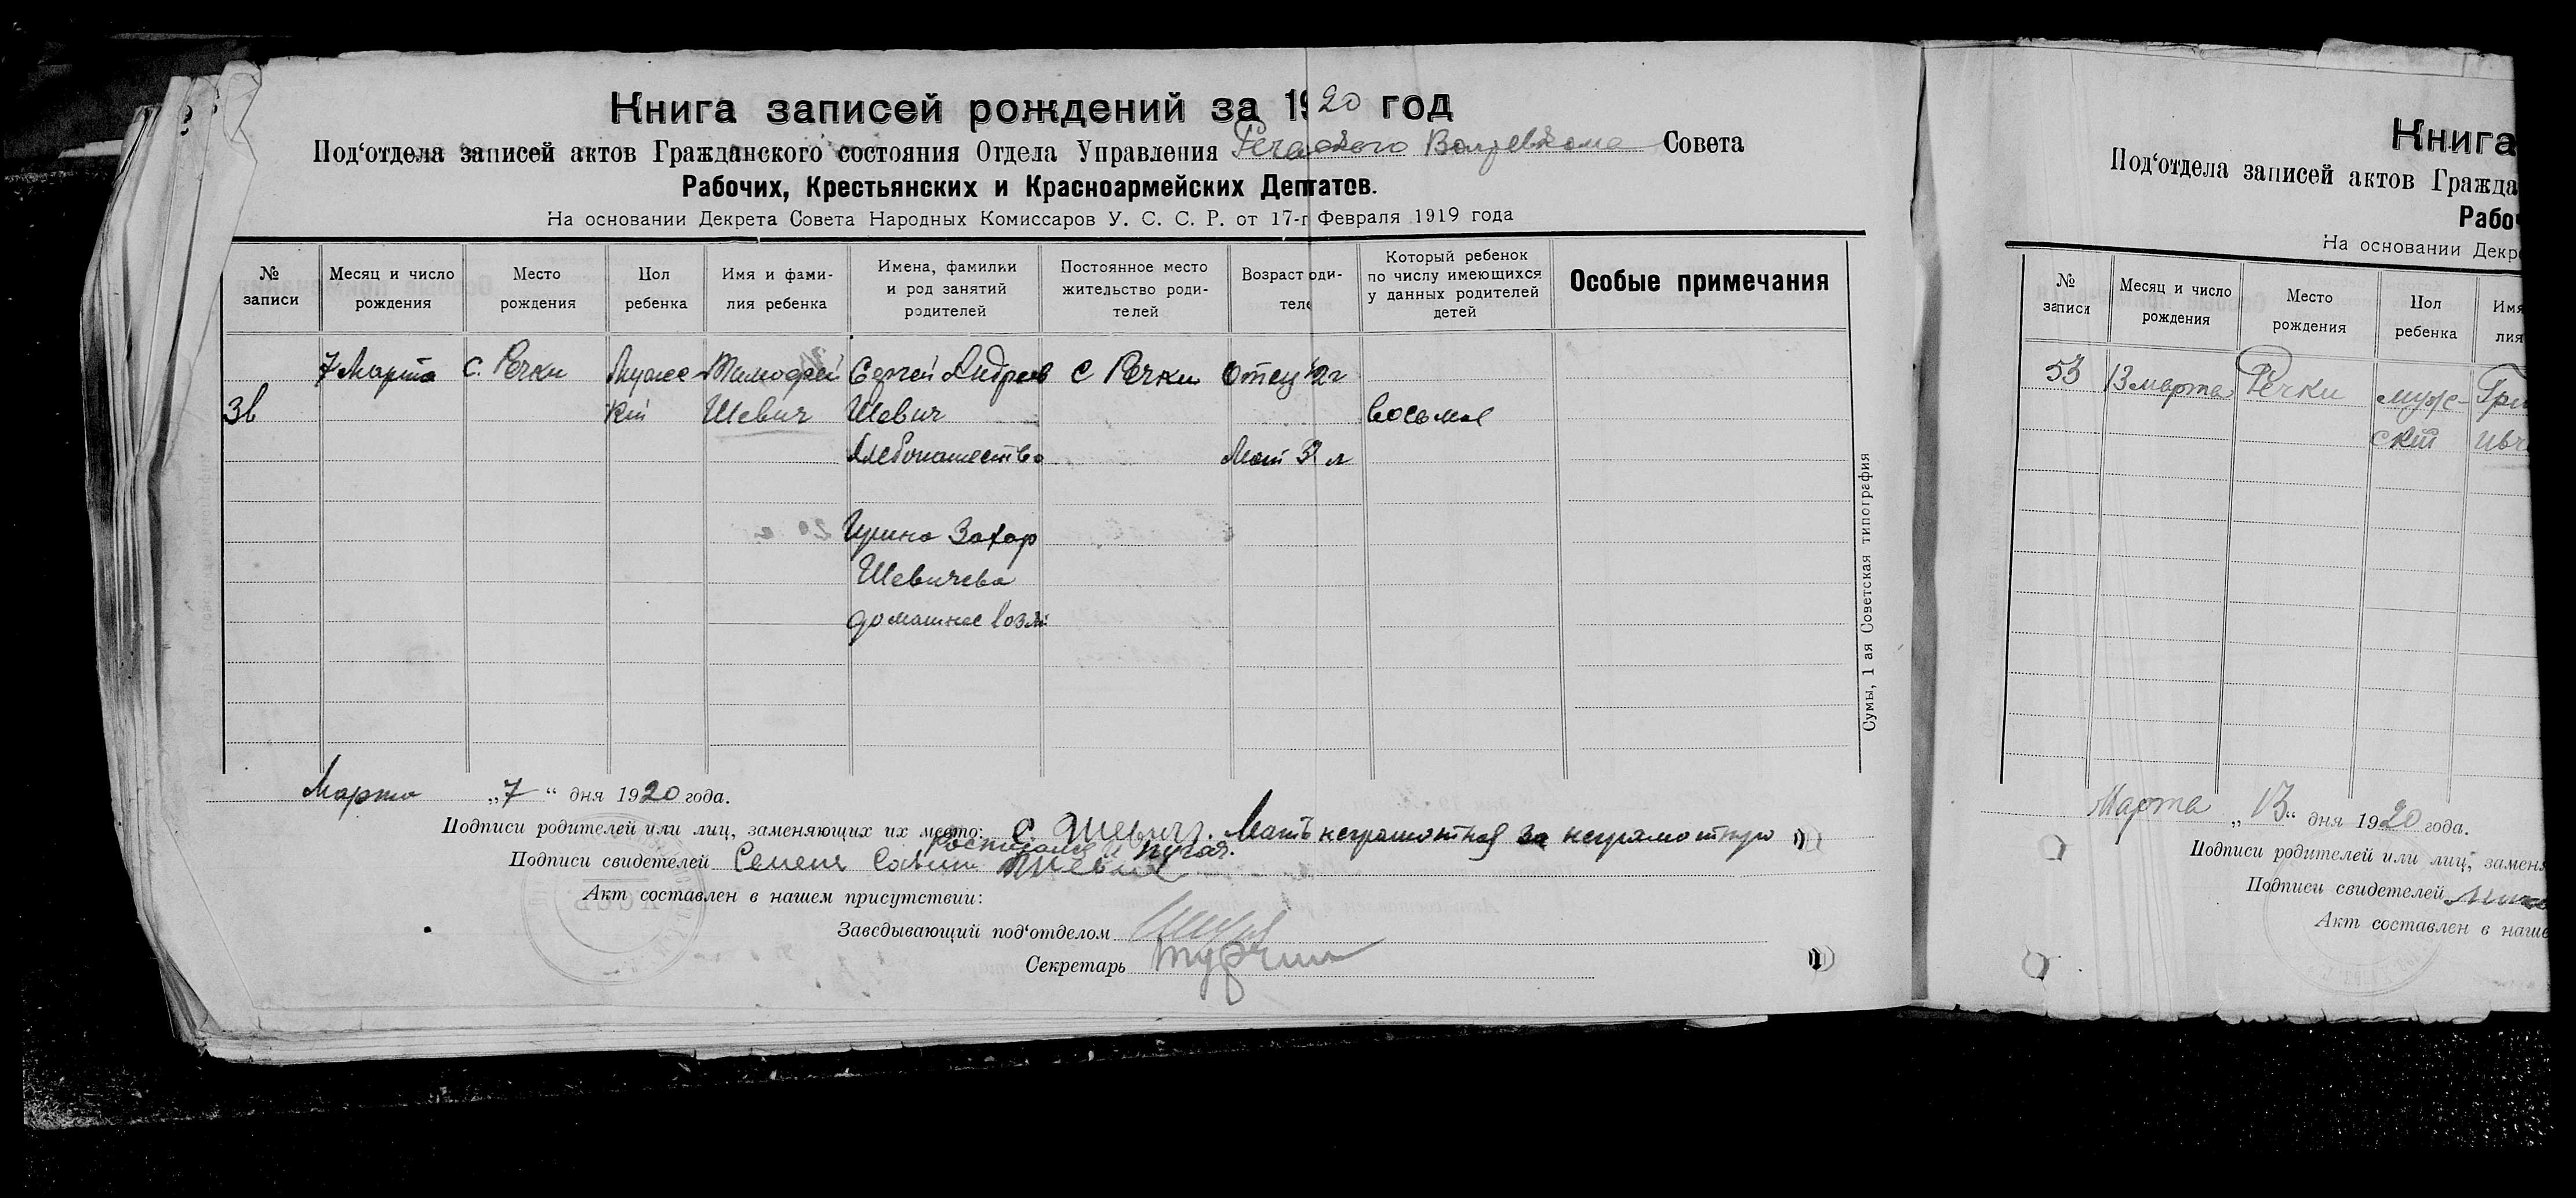 Книга записей рождений за 1920 год
Под‘отдела записей актов Гражданского состояния Отдела Управления Речанского Волревкома Совета
Рабочих, Крестьянских и Красноармейских Депутатов.
На основании Декрета Совета Народных Комиссаров У. С. С. Р. от 17-г Февраля 1919 года
№ записи
Месяц и число рождения
Место рождения
Пол ребенка
Имя и фами-лия ребенка
Имена, фамилии и род занятий родителей
Постоянное место жительство роди-телей
Возраст оди-теле
Который ребенок по числу имеющихся у данных родителей детей
Особые примечания
7 Марта С. Речки Мужес Тимофей Сергей Андреев С Речки Отец 42 г
кій Шевич Шевич восьмое
Хлебопашество Мат л
Ирина Захар
Шевичева
домашнее хозяй
Сумы, 1 ая Советская типография
Марта „7“ дня 1920 года.
Подписи родителей или лиц, заменяющих их место: С. Шевич. Мать неграмотная за неграмотную
расписался И
Подписи свидетелей Семен Шевич
Акт составлен в нашем присутствии:
Заведывающий под‘отделом
Секретарь
Книга
Под‘отдела записей актов Гражда
Рабоч
На основании Декр
№ записи
Месяц и число рождения
Место рождения
Пол ребенка
Имя
лия
53 13 марта Речки муж- Гри
скій Ивч
Марта „13“ дня 1920 года.
Подписи родителей или лиц, заменя
Подписи свидетелей
Акт составлен в наше